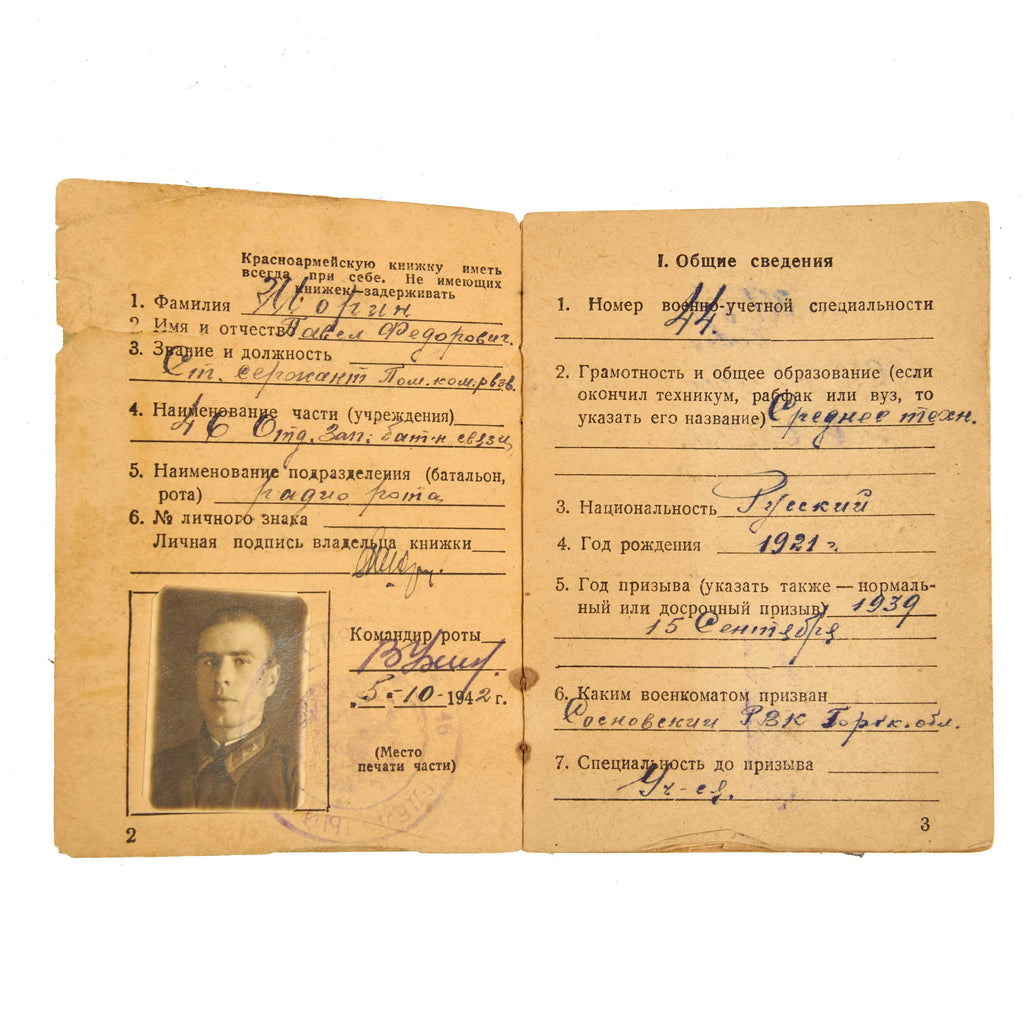 Красноармейскую книжку иметь
всегда при себе. Не имеющих
книжек задерживать
1. Фамилия
2. Имя и отчество Павел Федорович.
3. Звание и должность
Ст. сержант Пом. ком. р взв.
4. Наименование части (учреждения)
46 Отд. Зап. бат-н связи
5. Наименование подразделения (батальон,
рота) радио рота
6. № личного знака
Личная подпись владельца книжки
Командир роты
„5-10-1942 г.
(Место
печати части)
2
I. Общие сведения
1. Номер военно-учетной специальности
44.
2. Грамотность и общее образование (если
окончил техникум, рабфак или вуз, то
указать его название) Среднее техн.
3. Национальность Русский
4. Год рождения 1921 г.
5. Год призыва (указать также — нормаль-
ный или досрочный призыв) 1939
15 Сентября
6. Каким военкоматом призван
Сосновский РВК Горьк. обл.
7. Специальность до призыва
3